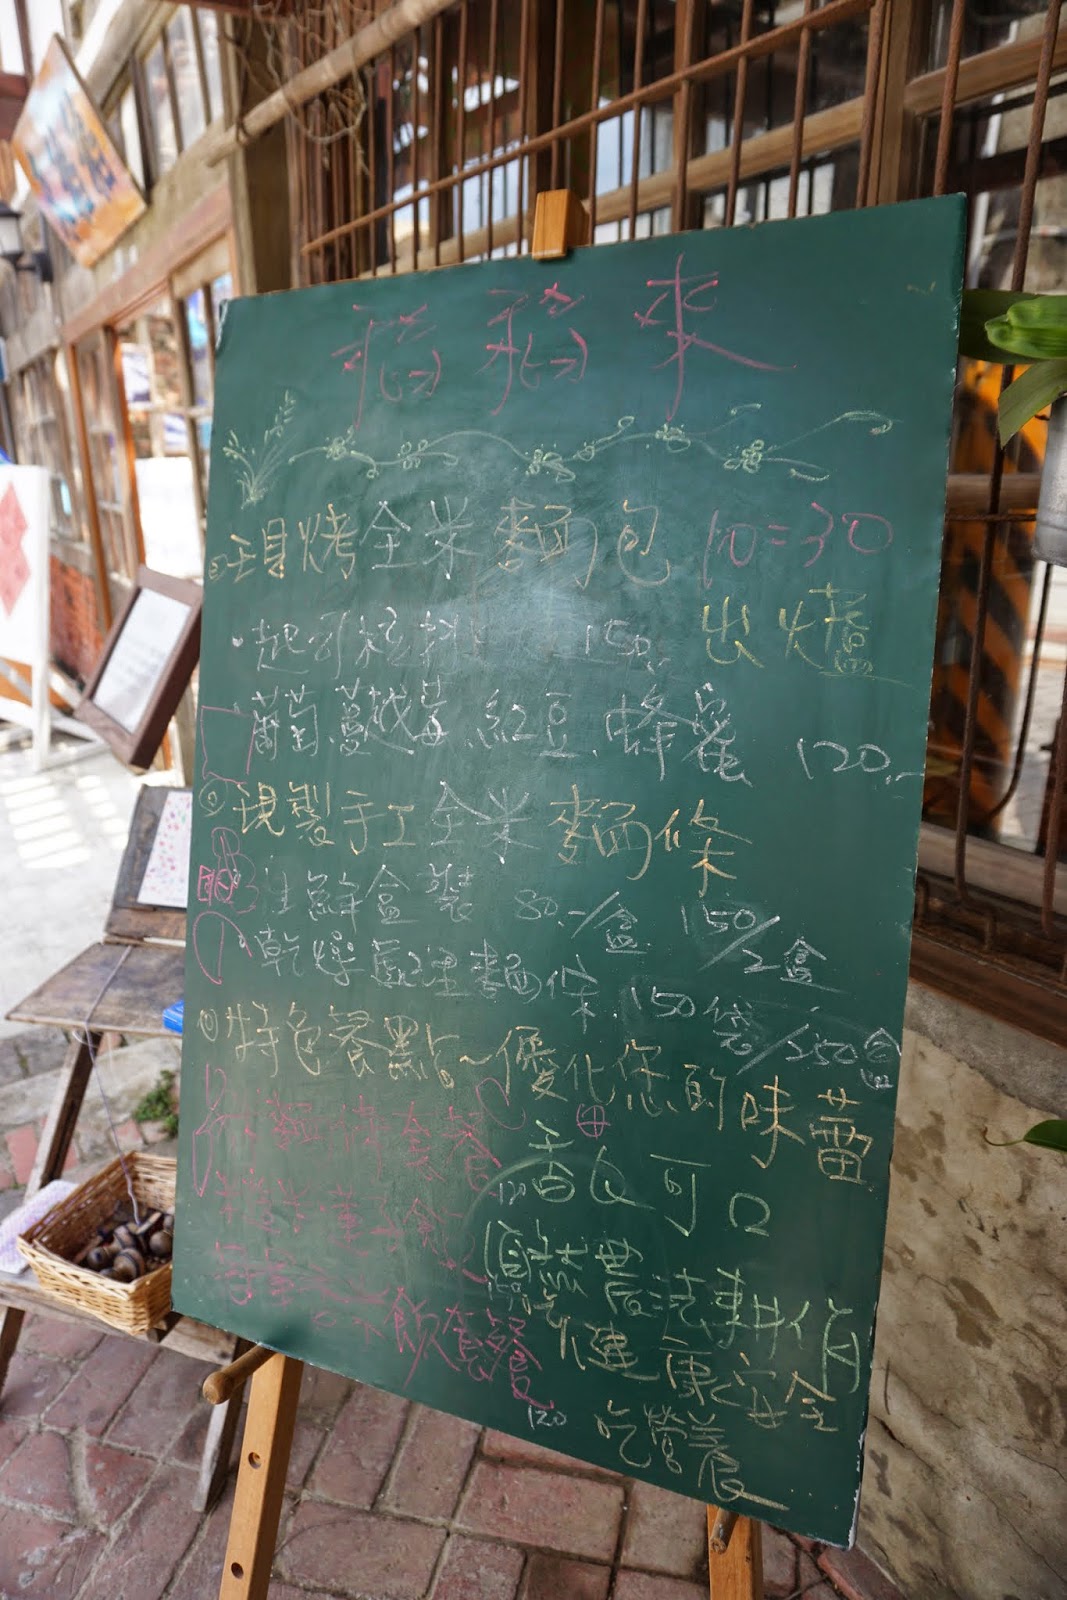 稻稻來
現烤全米麵包 10=30
出爐
起司 150
葡萄、蔓越莓、紅豆、蜂蜜 120.-
現製手工全米麵條
生鮮盒裝 80.-/盒 150/2盒
乾燥 麵條 150袋/250盒
特色餐點~優化您的味蕾
套餐 120 香Q可口
自然農法耕作
飲套餐 120 健康安全
吃營養